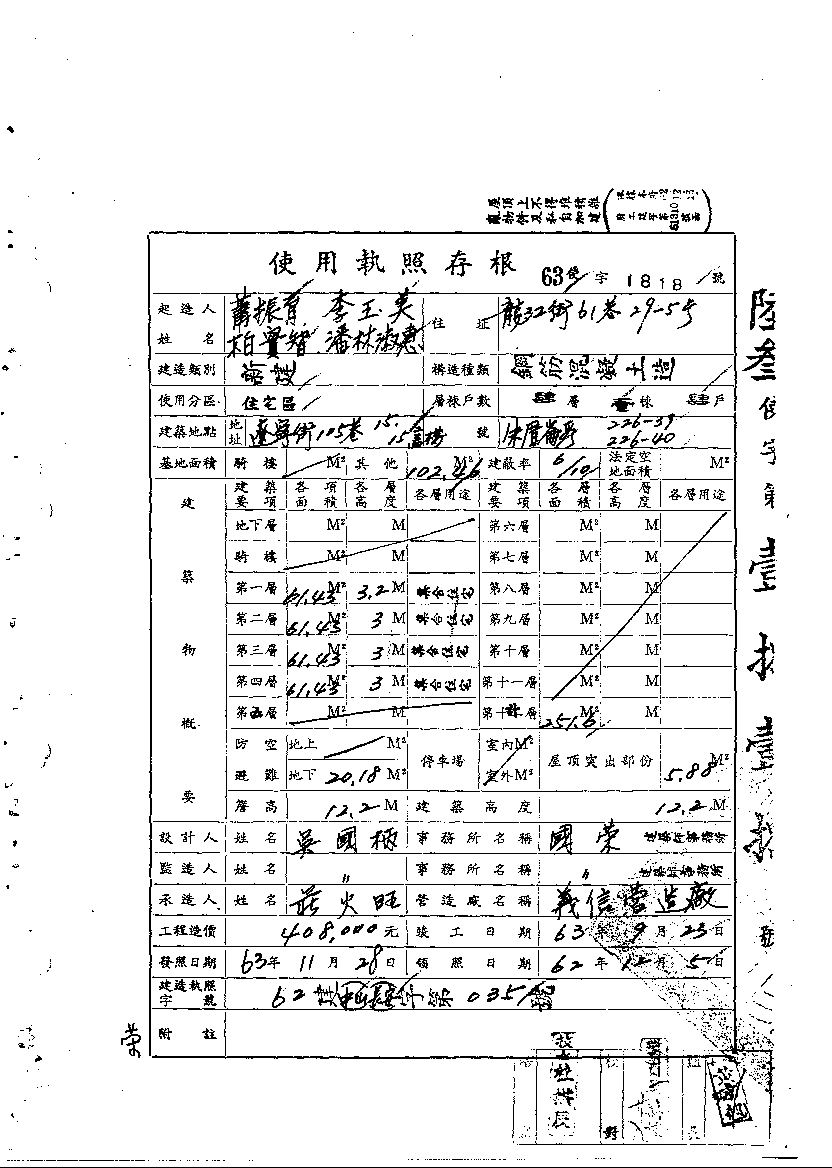 屋頂上不得堆積雜
亂物件及私自加建
使用執照存根 63使字1818號
起造人 姓名 蕭振育 李玉美 柏賢智 潘林淑惠 住址 龍江街61巷29-5号
建造類別 新建 構造種類 鋼筋混凝土造
使用分區 住宅區 層棟戶數 肆層壹棟肆戶
建築地點 地址 遼寧街105巷15. 號 226-39 226-40
基地面積 騎樓 M² 其他 102.46 M² 建蔽率 6/10 法定空地面積 M²
建築物概要
建築要項 各項面積 各層高度 各層用途 建築要項 各層面積 各層高度 各層用途
地下層 M² M 第六層 M² M
騎樓 M² M 第七層 M² M
第一層 61.43 M² 3.2 M 集合住宅 第八層 M² M
第二層 61.43 M² 3 M 集合住宅 第九層 M² M
第三層 61.43 M² 3 M 集合住宅 第十層 M² M
第四層 61.43 M² 3 M 集合住宅 第十一層 M² M
第五層 M² M 第十 層 M² M
防空避難 地上 M² 地下 20.18 M² 停車場 室內M² 室外M² 屋頂突出部份 5.88 M²
簷高 12.2 M 建築高度 12.2 M
設計人 姓名 吳國柄 事務所名稱 國榮
監造人 姓名 〃 事務所名稱 〃
承造人 姓名 莊火旺 營造廠名稱 義信營造廠
工程造價 408,000元 竣工日期 63年9月23日
發照日期 63年11月28日 領照日期 62年12月5日
建造執照字號 62 第035 號
附註
榮
陸叁使字第壹捌壹捌號